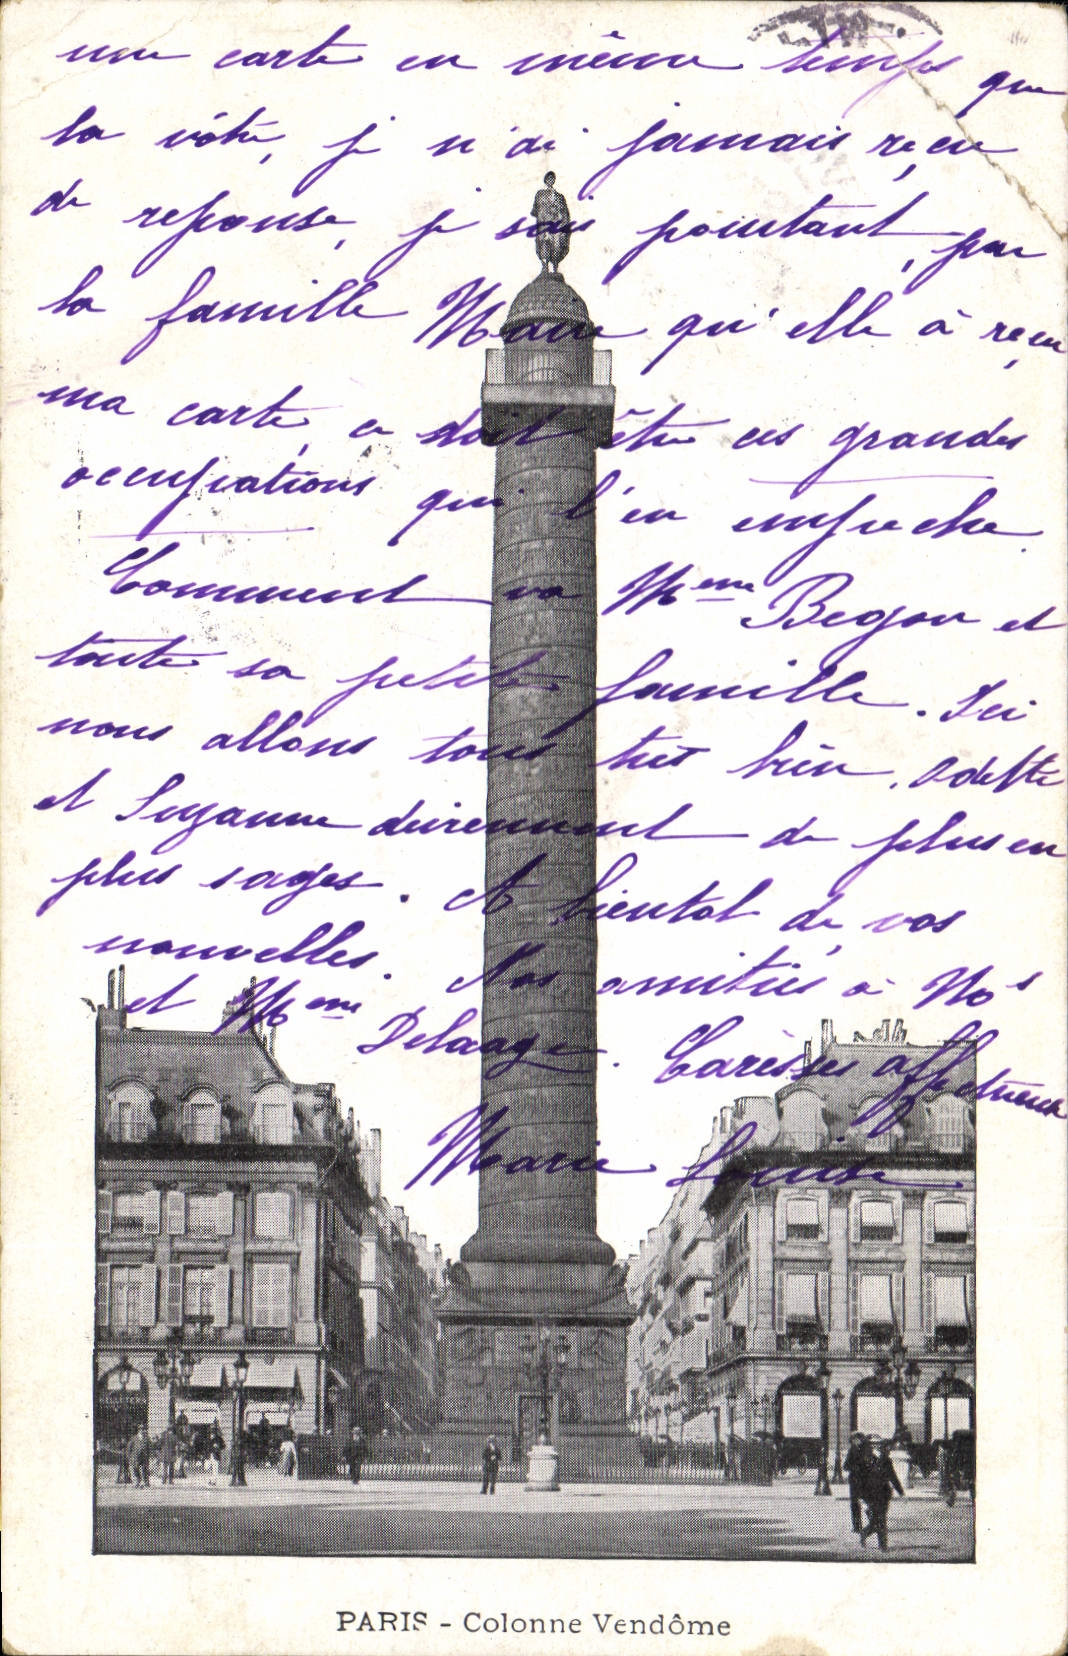 une carte en même temps que
la vôtre, je n'ai jamais reçu
de reponse, je sais pourtant, par
la famille Marie qu'elle à reçu
ma carte, ce doit être ces grandes
occupations qui l'en empeche.
Comment va Mme Begou et
toute sa petite famille. Ici
nous allons tous très bien, Odette
et Suzanne deviennent de plus en
plus sages. A bientot de vos
nouvelles. Nos amitiés à Mos
et Mme Delaage. Carèsses affectueuses
Marie Louise.
PARIS - Colonne Vendôme